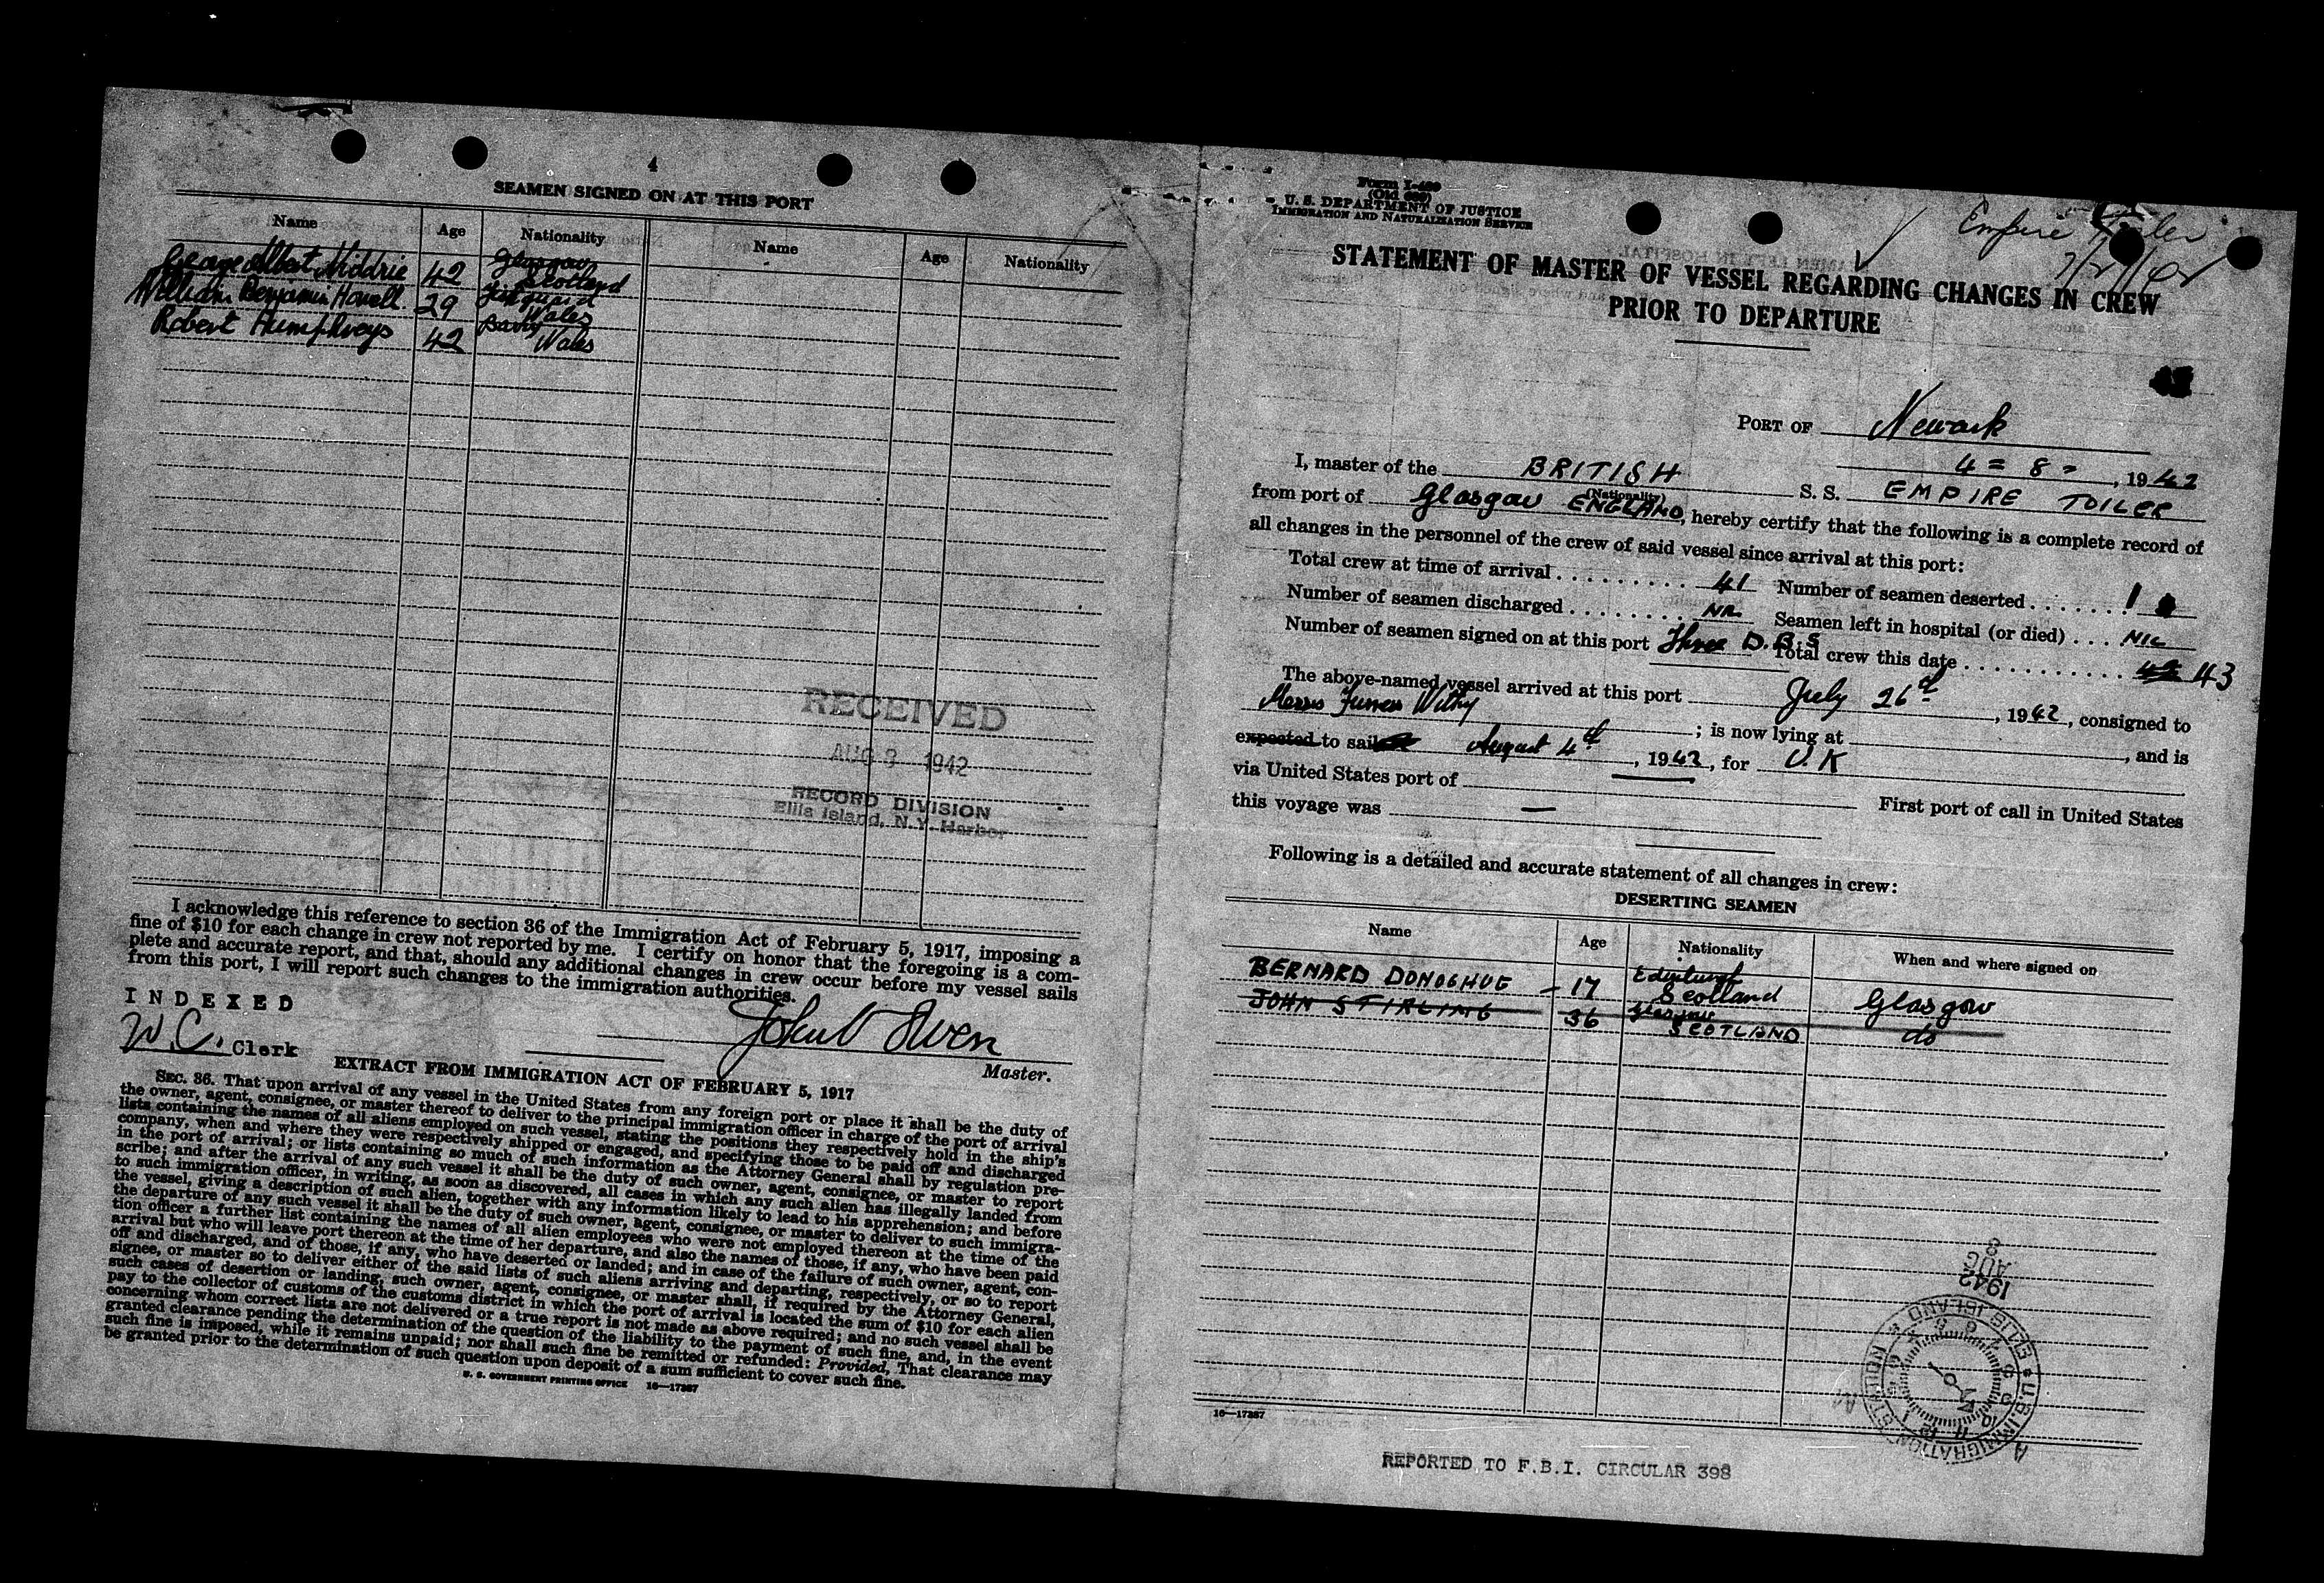 4
SEAMEN SIGNED ON AT THIS PORT
Name Age Nationality Name Age Nationality
George Albert Niddrie 42 Glasgow Scotland
William Benjamin Howell 29 Fishguard Wales
Robert Humphreys 42 Barry Wales
RECEIVED
AUG 8 1942
RECORD DIVISION
Ellis Island, N.Y. Harbor
I acknowledge this reference to section 36 of the Immigration Act of February 5, 1917, imposing a
fine of $10 for each change in crew not reported by me. I certify on honor that the foregoing is a com-
plete and accurate report, and that, should any additional changes in crew occur before my vessel sails
from this port, I will report such changes to the immigration authorities.
INDEXED
W.C. Clerk
John V Owen
Master.
EXTRACT FROM IMMIGRATION ACT OF FEBRUARY 5, 1917
SEC. 36. That upon arrival of any vessel in the United States from any foreign port or place it shall be the duty of
the owner, agent, consignee, or master thereof to deliver to the principal immigration officer in charge of the port of arrival
lists containing the names of all aliens employed on such vessel, stating the positions they respectively hold in the ship's
company, when and where they were respectively shipped or engaged, and specifying those to be paid off and discharged
in the port of arrival; or lists containing so much of such information as the Attorney General shall by regulation pre-
scribe; and after the arrival of any such vessel it shall be the duty of such owner, agent, consignee, or master to report
to such immigration officer, in writing, as soon as discovered, all cases in which any such alien has illegally landed from
the vessel, giving a description of such alien, together with any information likely to lead to his apprehension; and before
the departure of any such vessel it shall be the duty of such owner, agent, consignee, or master to deliver to such immigra-
tion officer a further list containing the names of all alien employees who were not employed thereon at the time of the
arrival but who will leave port thereon at the time of her departure, and also the names of those, if any, who have been paid
off and discharged, and of those, if any, who have deserted or landed; and in case of the failure of such owner, agent, con-
signee, or master so to deliver either of the said lists of such aliens arriving and departing, respectively, or so to report
such cases of desertion or landing, such owner, agent, consignee, or master shall, if required by the Attorney General,
pay to the collector of customs of the customs district in which the port of arrival is located the sum of $10 for each alien
concerning whom correct lists are not delivered or a true report is not made as above required; and no such vessel shall be
granted clearance pending the determination of the question of the liability to the payment of such fine, and, in the event
such fine is imposed, while it remains unpaid; nor shall such fine be remitted or refunded: Provided, That clearance may
be granted prior to the determination of such question upon deposit of a sum sufficient to cover such fine.
U. S. GOVERNMENT PRINTING OFFICE 16—17387
Form I-489
(Old 689)
U. S. DEPARTMENT OF JUSTICE
IMMIGRATION AND NATURALIZATION SERVICE
Empire Toiler
STATEMENT OF MASTER OF VESSEL REGARDING CHANGES IN CREW
PRIOR TO DEPARTURE
PORT OF Newark
4 = 8 = , 1942
I, master of the BRITISH S. S. EMPIRE TOILER
(Nationality)
from port of Glasgow ENGLAND, hereby certify that the following is a complete record of
all changes in the personnel of the crew of said vessel since arrival at this port:
Total crew at time of arrival 41 Number of seamen deserted 1
Number of seamen discharged NIL Seamen left in hospital (or died) NIL
Number of seamen signed on at this port Three D.B.S Total crew this date 42 43
The above-named vessel arrived at this port July 26th, 1942, consigned to
Messrs Furness Withy ; is now lying at , and is
expected to sail August 4th, 1942, for U.K
via United States port of — First port of call in United States
this voyage was —
Following is a detailed and accurate statement of all changes in crew:
DESERTING SEAMEN
Name Age Nationality When and where signed on
BERNARD DONOGHUE - 17 Edinburgh Scotland Glasgow
JOHN STIRLING 36 Glasgow SCOTLAND do
1942 AUG 8
U.S. IMMIGRATION STATION ELLIS ISLAND
16—17387
REPORTED TO F.B.I. CIRCULAR 398